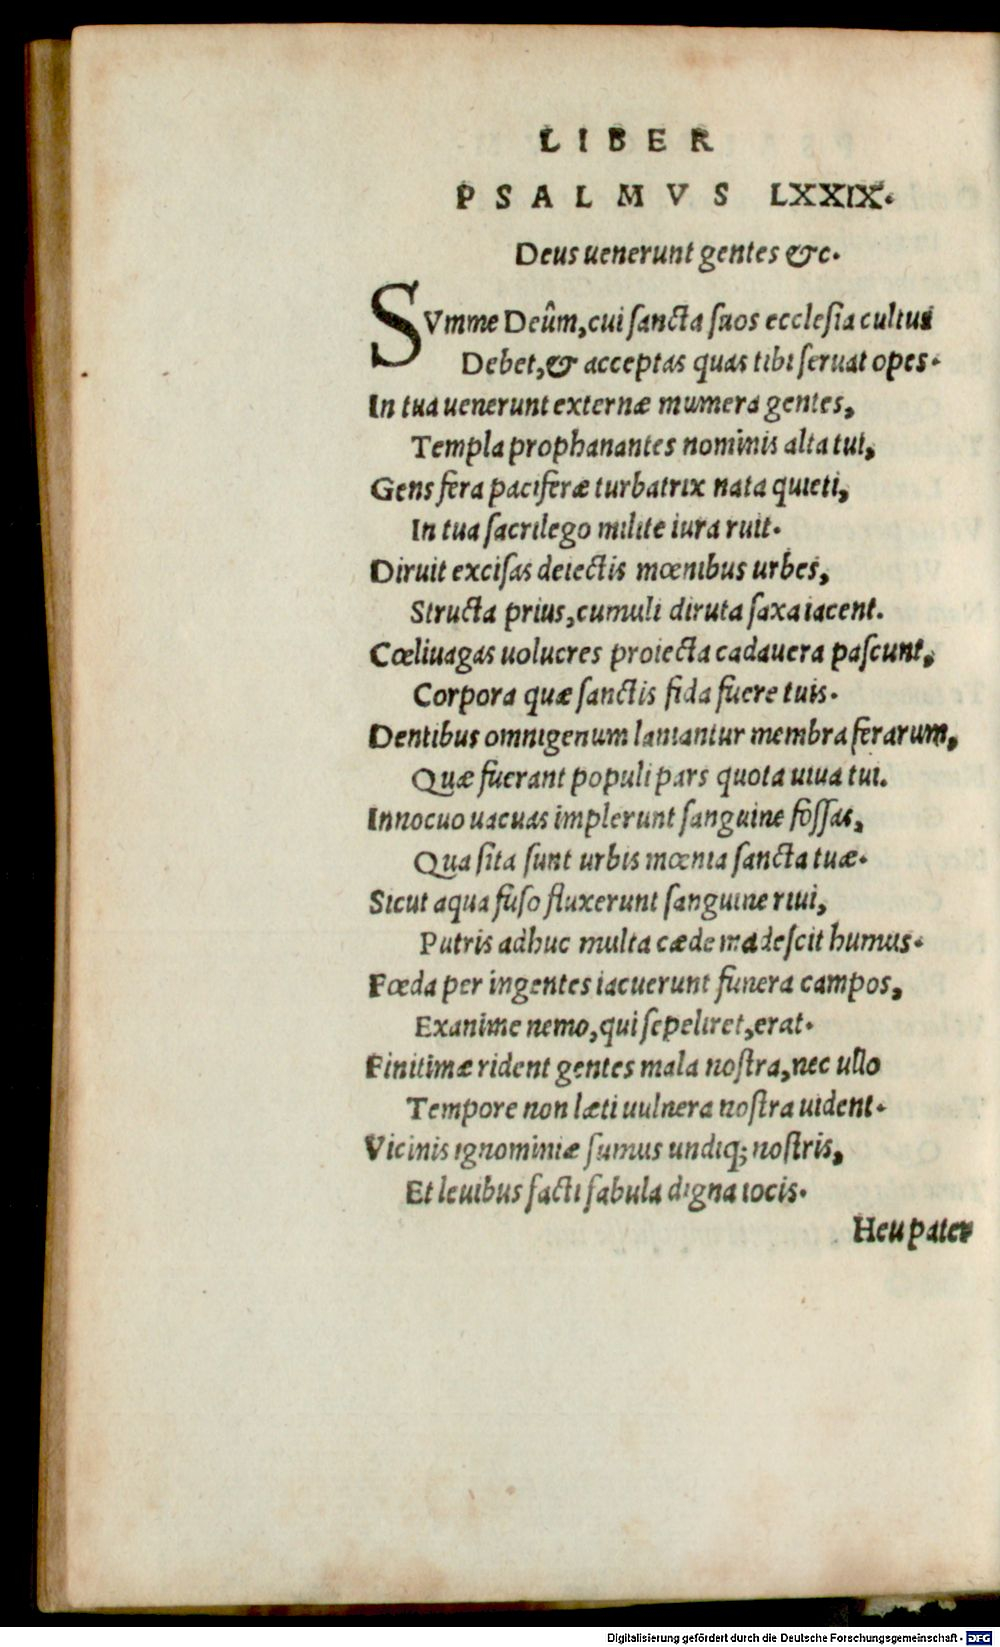 LIBER
PSALMVS LXXIX.
Deus uenerunt gentes &c.
SVmme Deûm, cui sancta suos ecclesia cultus
Debet, & acceptas quas tibi seruat opes.
In tua uenerunt externæ mumera gentes,
Templa prophanantes nominis alta tui,
Gens fera paciferæ turbatrix nata quieti,
In tua sacrilego milite iura ruit.
Diruit excisas deiectis mœnibus urbes,
Structa prius, cumuli diruta saxa iacent.
Cœliuagas uolucres proiecta cadauera pascunt,
Corpora quæ sanctis fida fuere tuis.
Dentibus omnigenum laniantur membra ferarum,
Quæ fuerant populi pars quota uiua tui.
Innocuo uacuas implerunt sanguine fossas,
Qua sita sunt urbis mœnia sancta tuæ.
Sicut aqua fuso fluxerunt sanguine riui,
Putris adhuc multa cæde madescit humus.
Fœda per ingentes iacuerunt funera campos,
Exanime nemo, qui sepeliret, erat.
Finitimæ rident gentes mala nostra, nec ullo
Tempore non læti uulnera nostra uident.
Vicinis ignominiæ sumus undiq; nostris,
Et leuibus facti fabula digna iocis.
Heu pater
Digitalisierung gefördert durch die Deutsche Forschungsgemeinschaft - DFG